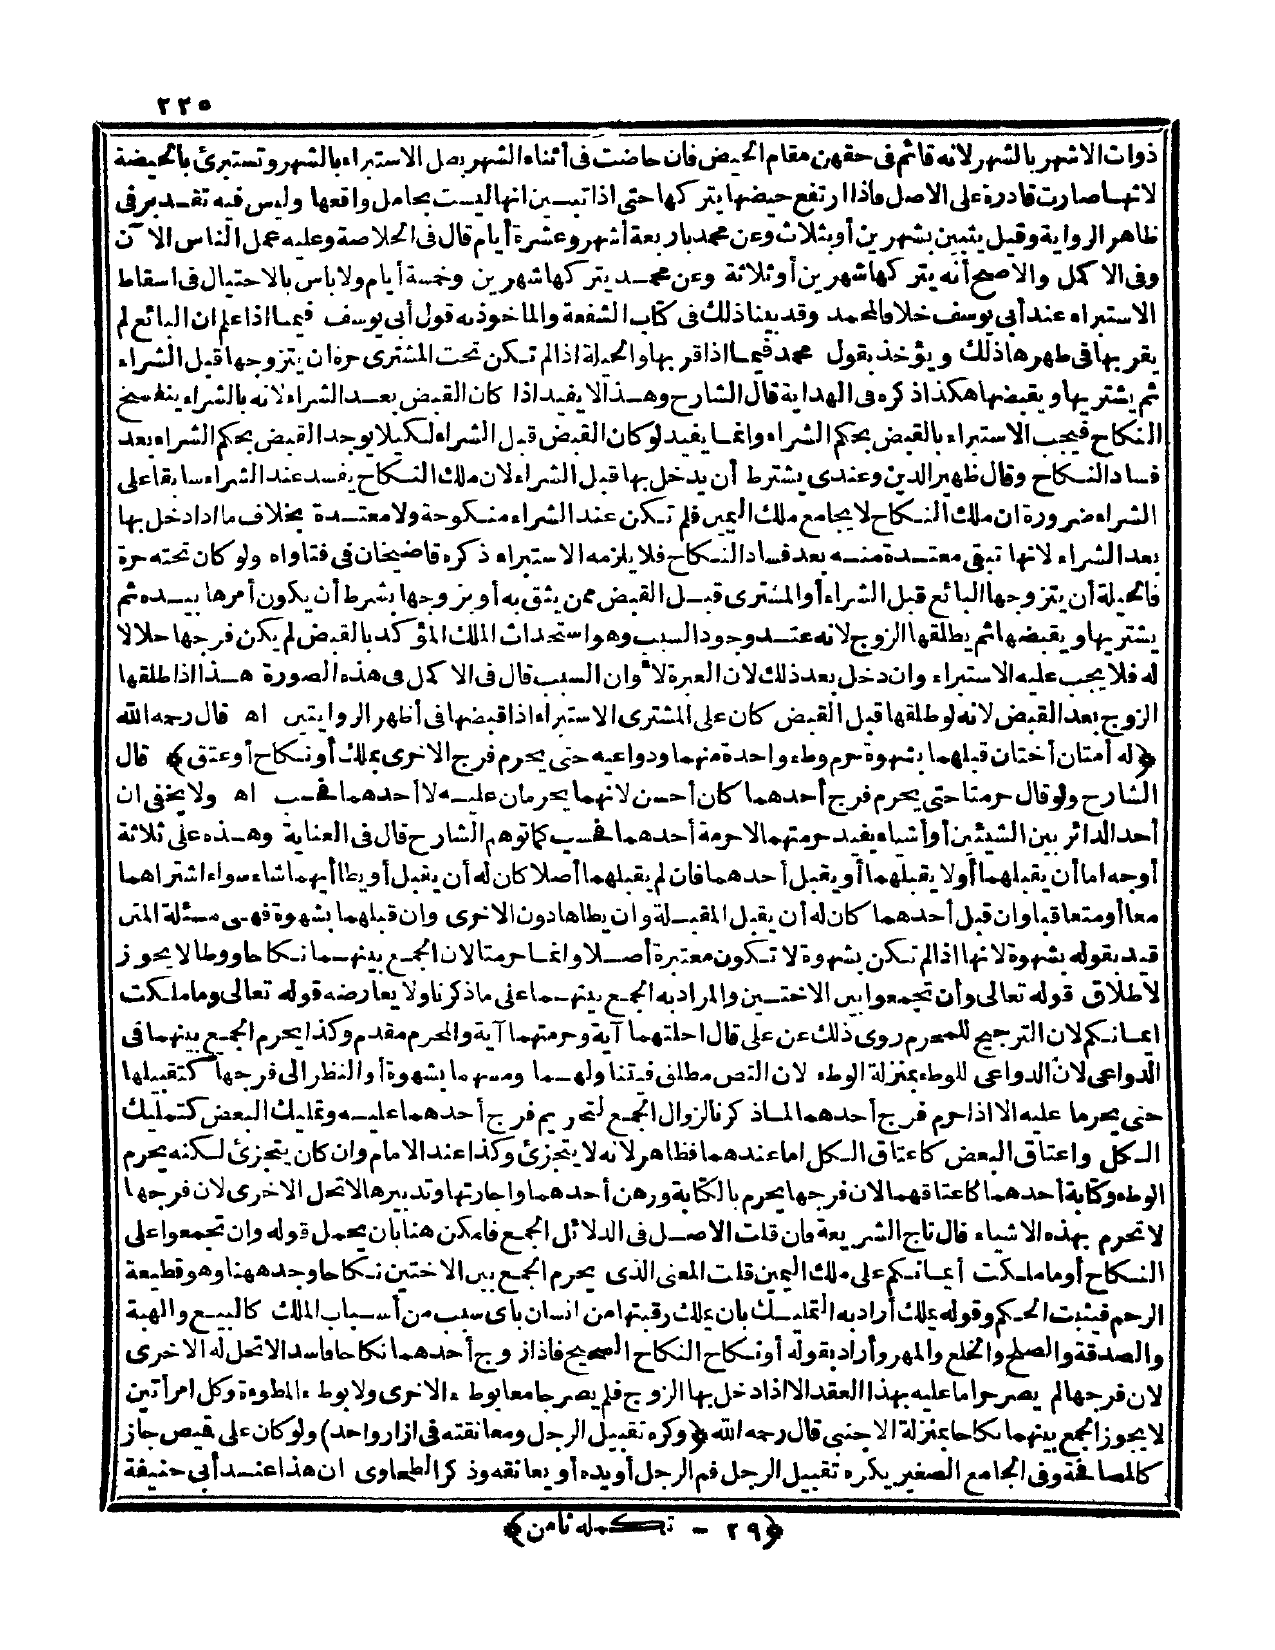 ٢٢٥
ذوات الاشهر بالشهر لانه قائم فى حقهن مقام الحيض فان حاضت فى أثناء الشهر بطل الاستبراء بالشهر وتستبرئ بالحيضة
لانها صارت قادرة على الاصل فاذا ارتفع حيضها يتركها حتى اذا تبين انها ليست بحامل واقعها وليس فيه تقدير فى
ظاهر الرواية وقيل يتبين بشهرين أو بثلاث وعن محمد باربعة أشهر وعشرة أيام قال فى الخلاصة وعليه عمل الناس الآن
وفى الاكمل والاصح أنه يتركها شهرين أو ثلاثة وعن محمد يتركها شهرين وخمسة أيام ولا باس بالاحتيال فى اسقاط
الاستبراء عند أبى يوسف خلافا لمحمد وقد بينا ذلك فى كتاب الشفعة والماخوذ به قول أبى يوسف فيما اذا علم ان البائع لم
يقربها فى طهرها ذلك ويؤخذ بقول محمد فيما اذا قربها والحيلة اذا لم تكن تحت المشترى حرة ان يتزوجها قبل الشراء
ثم يشتريها ويقبضها هكذا ذكره فى الهداية قال الشارح وهذا لا يفيد اذا كان القبض بعد الشراء لانه بالشراء ينفسخ
النكاح فيجب الاستبراء بالقبض بحكم الشراء وانما يفيد لو كان القبض قبل الشراء لكيلا يوجد القبض بحكم الشراء بعد
فساد النكاح وقال ظهير الدين وعندى يشترط أن يدخل بها قبل الشراء لان ملك النكاح يفسد عند الشراء سابقا على
الشراء ضرورة ان ملك النكاح لا يجامع ملك اليمين فلم تكن عند الشراء منكوحة ولا معتدة بخلاف ما اذا دخل بها
بعد الشراء لانها تبقى معتدة منه بعد فساد النكاح فلا يلزمه الاستبراء ذكره قاضيخان فى فتاواه ولو كان تحته حرة
فالحيلة أن يتزوجها البائع قبل الشراء أو المشترى قبل القبض ممن يثق به أو يزوجها بشرط أن يكون أمرها بيده ثم
يشتريها ويقبضها ثم يطلقها الزوج لانه عند وجود السبب وهو استحداث الملك المؤكد بالقبض لم يكن فرجها حلالا
له فلا يجب عليه الاستبراء وان دخل بعد ذلك لان العبرة لاوان السبب قال فى الاكمل فى هذه الصورة هذا اذا طلقها
الزوج بعد القبض لانه لو طلقها قبل القبض كان على المشترى الاستبراء اذا قبضها فى أظهر الروايتين اه قال رحمه الله
﴿له أمتان أختان قبلهما بشهوة حرم وطء واحدة منهما ودواعيه حتى يحرم فرج الاخرى بملك أو نكاح أو عتق﴾ قال
الشارح ولو قال حرمتا حتى يحرم فرج أحدهما كان أحسن لانهما يحرمان عليه لا أحدهما فحسب اه ولا يخفى ان
أحد الدائر بين الشيئين أو أشياء يفيد حرمتهما لا حرمة أحدهما فحسب كما توهم الشارح قال فى العناية وهذه على ثلاثة
أوجه اما أن يقبلهما أو لا يقبلهما أو يقبل أحدهما فان لم يقبلهما أصلا كان له أن يقبل أو يطأ أيهما شاء سواء اشتراهما
معا أو متعاقبا وان قبل أحدهما كان له أن يقبل المقبلة وان يطاها دون الاخرى وان قبلهما بشهوة فهى مسئلة المتن
قيد بقوله بشهوة لانها اذا لم تكن بشهوة لا تكون معتبرة أصلا وانما حرمتا لان الجمع بينهما نكاحا ووطا لا يجوز
لاطلاق قوله تعالى وأن تجمعوا بين الاختين والمراد به الجمع بينهما على ما ذكرنا ولا يعارضه قوله تعالى وما ملكت
ايمانكم لان الترجيح للمحرم روى ذلك عن على قال احلتهما آية وحرمتهما آية والمحرم مقدم وكذا يحرم الجمع بينهما فى
الدواعى لان الدواعى للوطء بمنزلة الوطء لان النص مطلق فيتناولهما ومسهما بشهوة أو النظر الى فرجها كتقبيلها
حتى يحرما عليه الا اذا حرم فرج أحدهما لما ذكرنا لزوال الجمع لتحريم فرج أحدهما عليه وتمليك البعض كتمليك
الكل واعتاق البعض كاعتاق الكل اما عندهما فظاهر لانه لا يتجزئ وكذا عند الامام وان كان يتجزئ لكنه يحرم
الوطء وكتابة أحدهما كاعتاقهما لان فرجها يحرم بالكتابة ورهن أحدهما واجارتها وتدبيرها لا تحل الاخرى لان فرجها
لا تحرم بهذه الاشياء قال تاج الشريعة فان قلت الاصل فى الدلائل الجمع فامكن هنا بان يحمل قوله وان تجمعوا على
النكاح أو ما ملكت أيمانكم على ملك اليمين قلت المعنى الذى يحرم الجمع بين الاختين نكاحا وجد ههنا وهو قطيعة
الرحم فيثبت الحكم وقوله بملك أراد به التمليك بان يملك رقبتها من انسان باى سبب من أسباب الملك كالبيع والهبة
والصدقة والصلح والخلع والمهر وأراد بقوله أو نكاح النكاح الصحيح فاذا زوج أحدهما نكاحا فاسدا لا تحل له الاخرى
لان فرجها لم يصر حراما عليه بهذا العقد الا اذا دخل بها الزوج فلم يصر جامعا بوطء الاخرى ولا بوطء المطوءة وكل امرأتين
لا يجوز الجمع بينهما نكاحا بمنزلة الاجنبى قال رحمه الله ﴿وكره تقبيل الرجل ومعانقته فى ازار واحد) ولو كان على قميص جاز
كالمصافحة وفى الجامع الصغير يكره تقبيل الرجل فم الرجل أو يده أو يعانقه وذكر الطحاوى ان هذا عند أبى حنيفة
﴿٢٩ - تكمله ثامن﴾